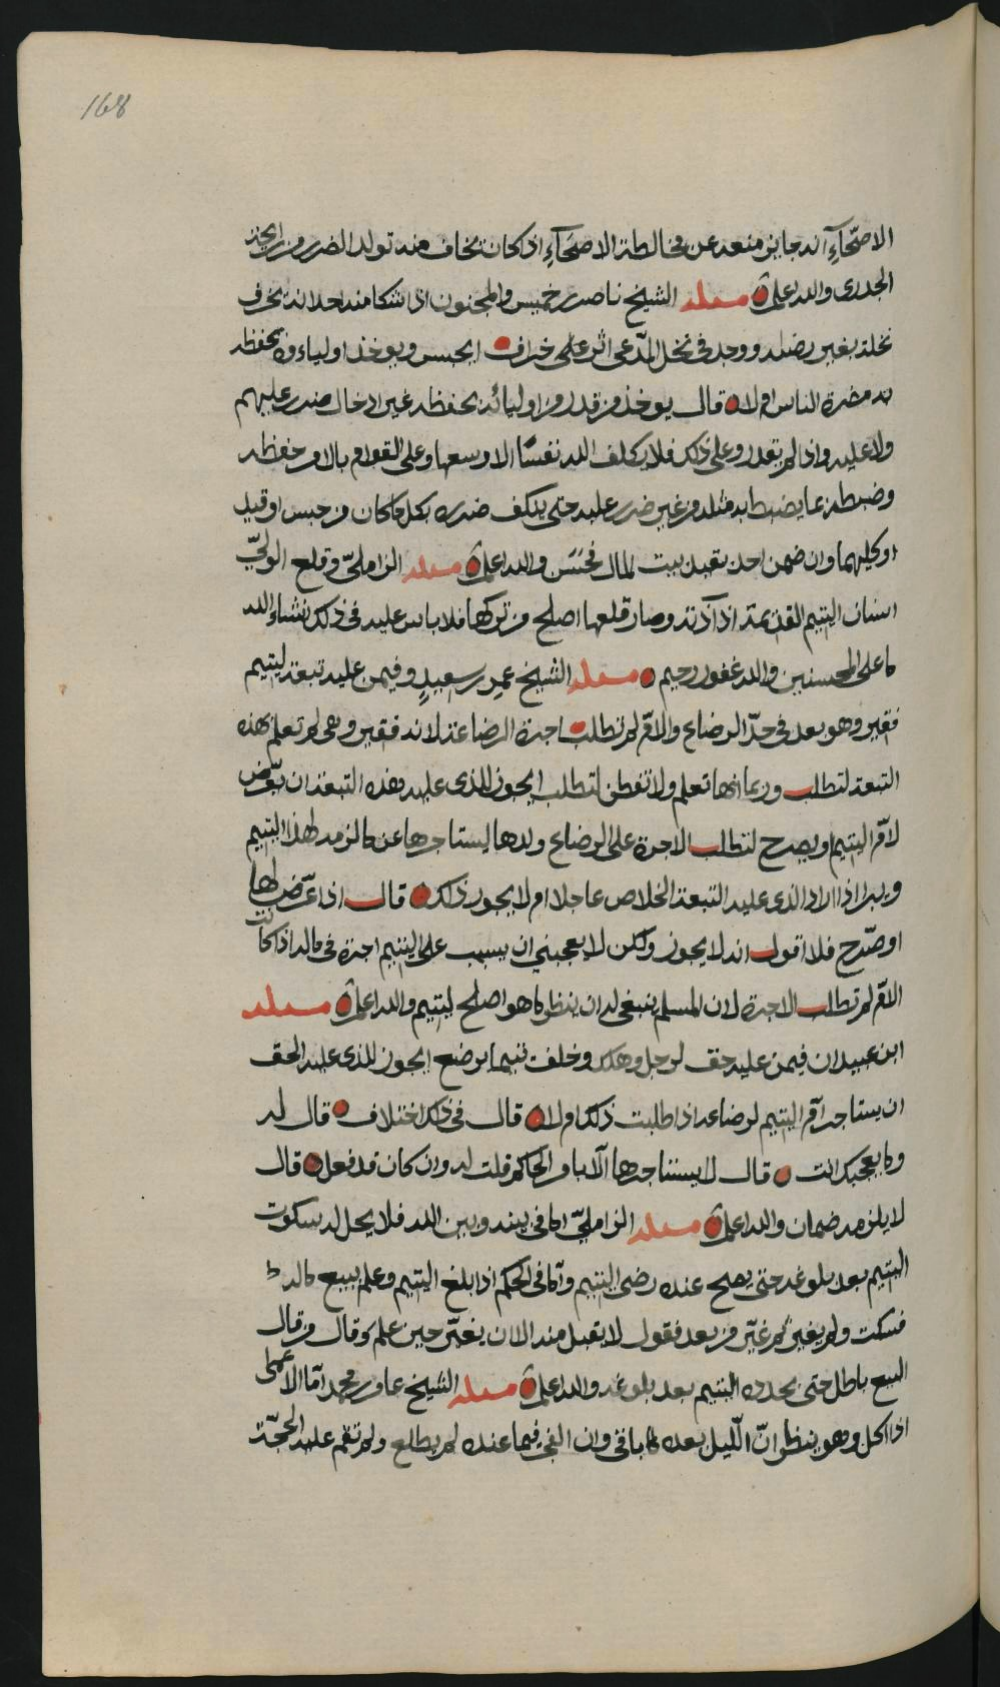 168
الاصحّآءِ انه جايز منعه عن مخالطة الاصحَآءِ اذ كانت يخاف منه تولد الضرر من رايحة
الجدرى والله اعلم مسئلة الشيخ ناصر بن خميس والمجنون اذا شكا منه احد انه يخرف
نخلة بغير رضاه ووجد فى نخل المدّعى اثر على خراف ايحبس ويوخذ اولياءوه بحفظه
عن مضرة الناس ام لا قال يوخذ من قدر من اوليائه بحفظه غير ادخال ضرر عليهم
ولا عليه واذا لم يقدروا على ذلك فلا يكلف الله نفسًا الا وسعها وعلى القوام بالامر حفظه
وضبطه بما يضبط به مثله من غير ضرر عليه حتى ينكف ضرره بكل ما كان من حبس او قيد
او كليهما وان ضمن احد بقبل بيت المال فحَسَن والله اعلم مسئلة الزاملىّ وقلع الولىّ
اسنان اليتيم القديمة اذا آذته وصار قلعها اصلح من تركها فلا باس عليه فى ذلك انشاء الله
ما على المحسنين والله غفور رحيم مسئلة الشيخ عمر بن سعيدٍ وفيمن عليه تبعة ليتيم
فقير وهو بعد فى حدّ الرضاع والامّ لم تطلب اجرة الرضاعة لانه فقير وهى لم تعلم بهذه
التبعة لتطلب وربما انها تعلم ولا تفطن لتطلب ايجوز للذى عليه هذه التبعة ان يعّرض
لامّ اليتيم او يصرح لتطلب الاجرة على ارضاع ولدها ليستاجرها عن ما لزمه لهذا اليتيم
ويبرا اذا اراد الذى عليه التبعة الخلاص عاجلا ام لا يجوز ذلك قال اذا عرّض لها
او صّرح فلا اقول انه لا يجوز ولكن لا يعجبني ان يسبب على اليتيم اجرة فى ماله اذا كانت
الامّ لم تطلب الاجرة لان المسلم ينبغى له ان ينظر ما هو اصلح لليتيم والله اعلم مسئلة
ابن عبيدان فيمن عليه حق لرجل وهلك وخلف يتيما يرضع ايجوز للذى عليه الحق
ان يستاجر امّ اليتيم لرضاعه اذا طلبت ذلك ام لا قال فى ذلك اختلاف قال له
وما يعجبك انت قال لا يستاجرها الّا بامر الحاكم قلت له وان كان قد فعل قال
لا يلزمه ضمان والله اعلم مسئلة الزاملىّ اما فى بينه وبين الله فلا يحل له سكوت
اليتيم بعد بلوغه حتى يصلح عنده رضى اليتيم وامّا فى الحكم اذا بلغ اليتيم وعلم ببيع ماله
فسكت ولم يغيّر ثم غيّر من بعد فقول لا يقبل منه الا ان يغيّر حين علم وقال من قال
البيع باطل حتى يجدده اليتيم بعد بلوغه والله اعلم مسئلة الشيخ عامر بن محمد امّا الاعمى
اذا اكل وهو ينظر انّ الّليل بعده باقى وان الفجر فيما عنده لم يطلع ولم تقم عليه الحجّة